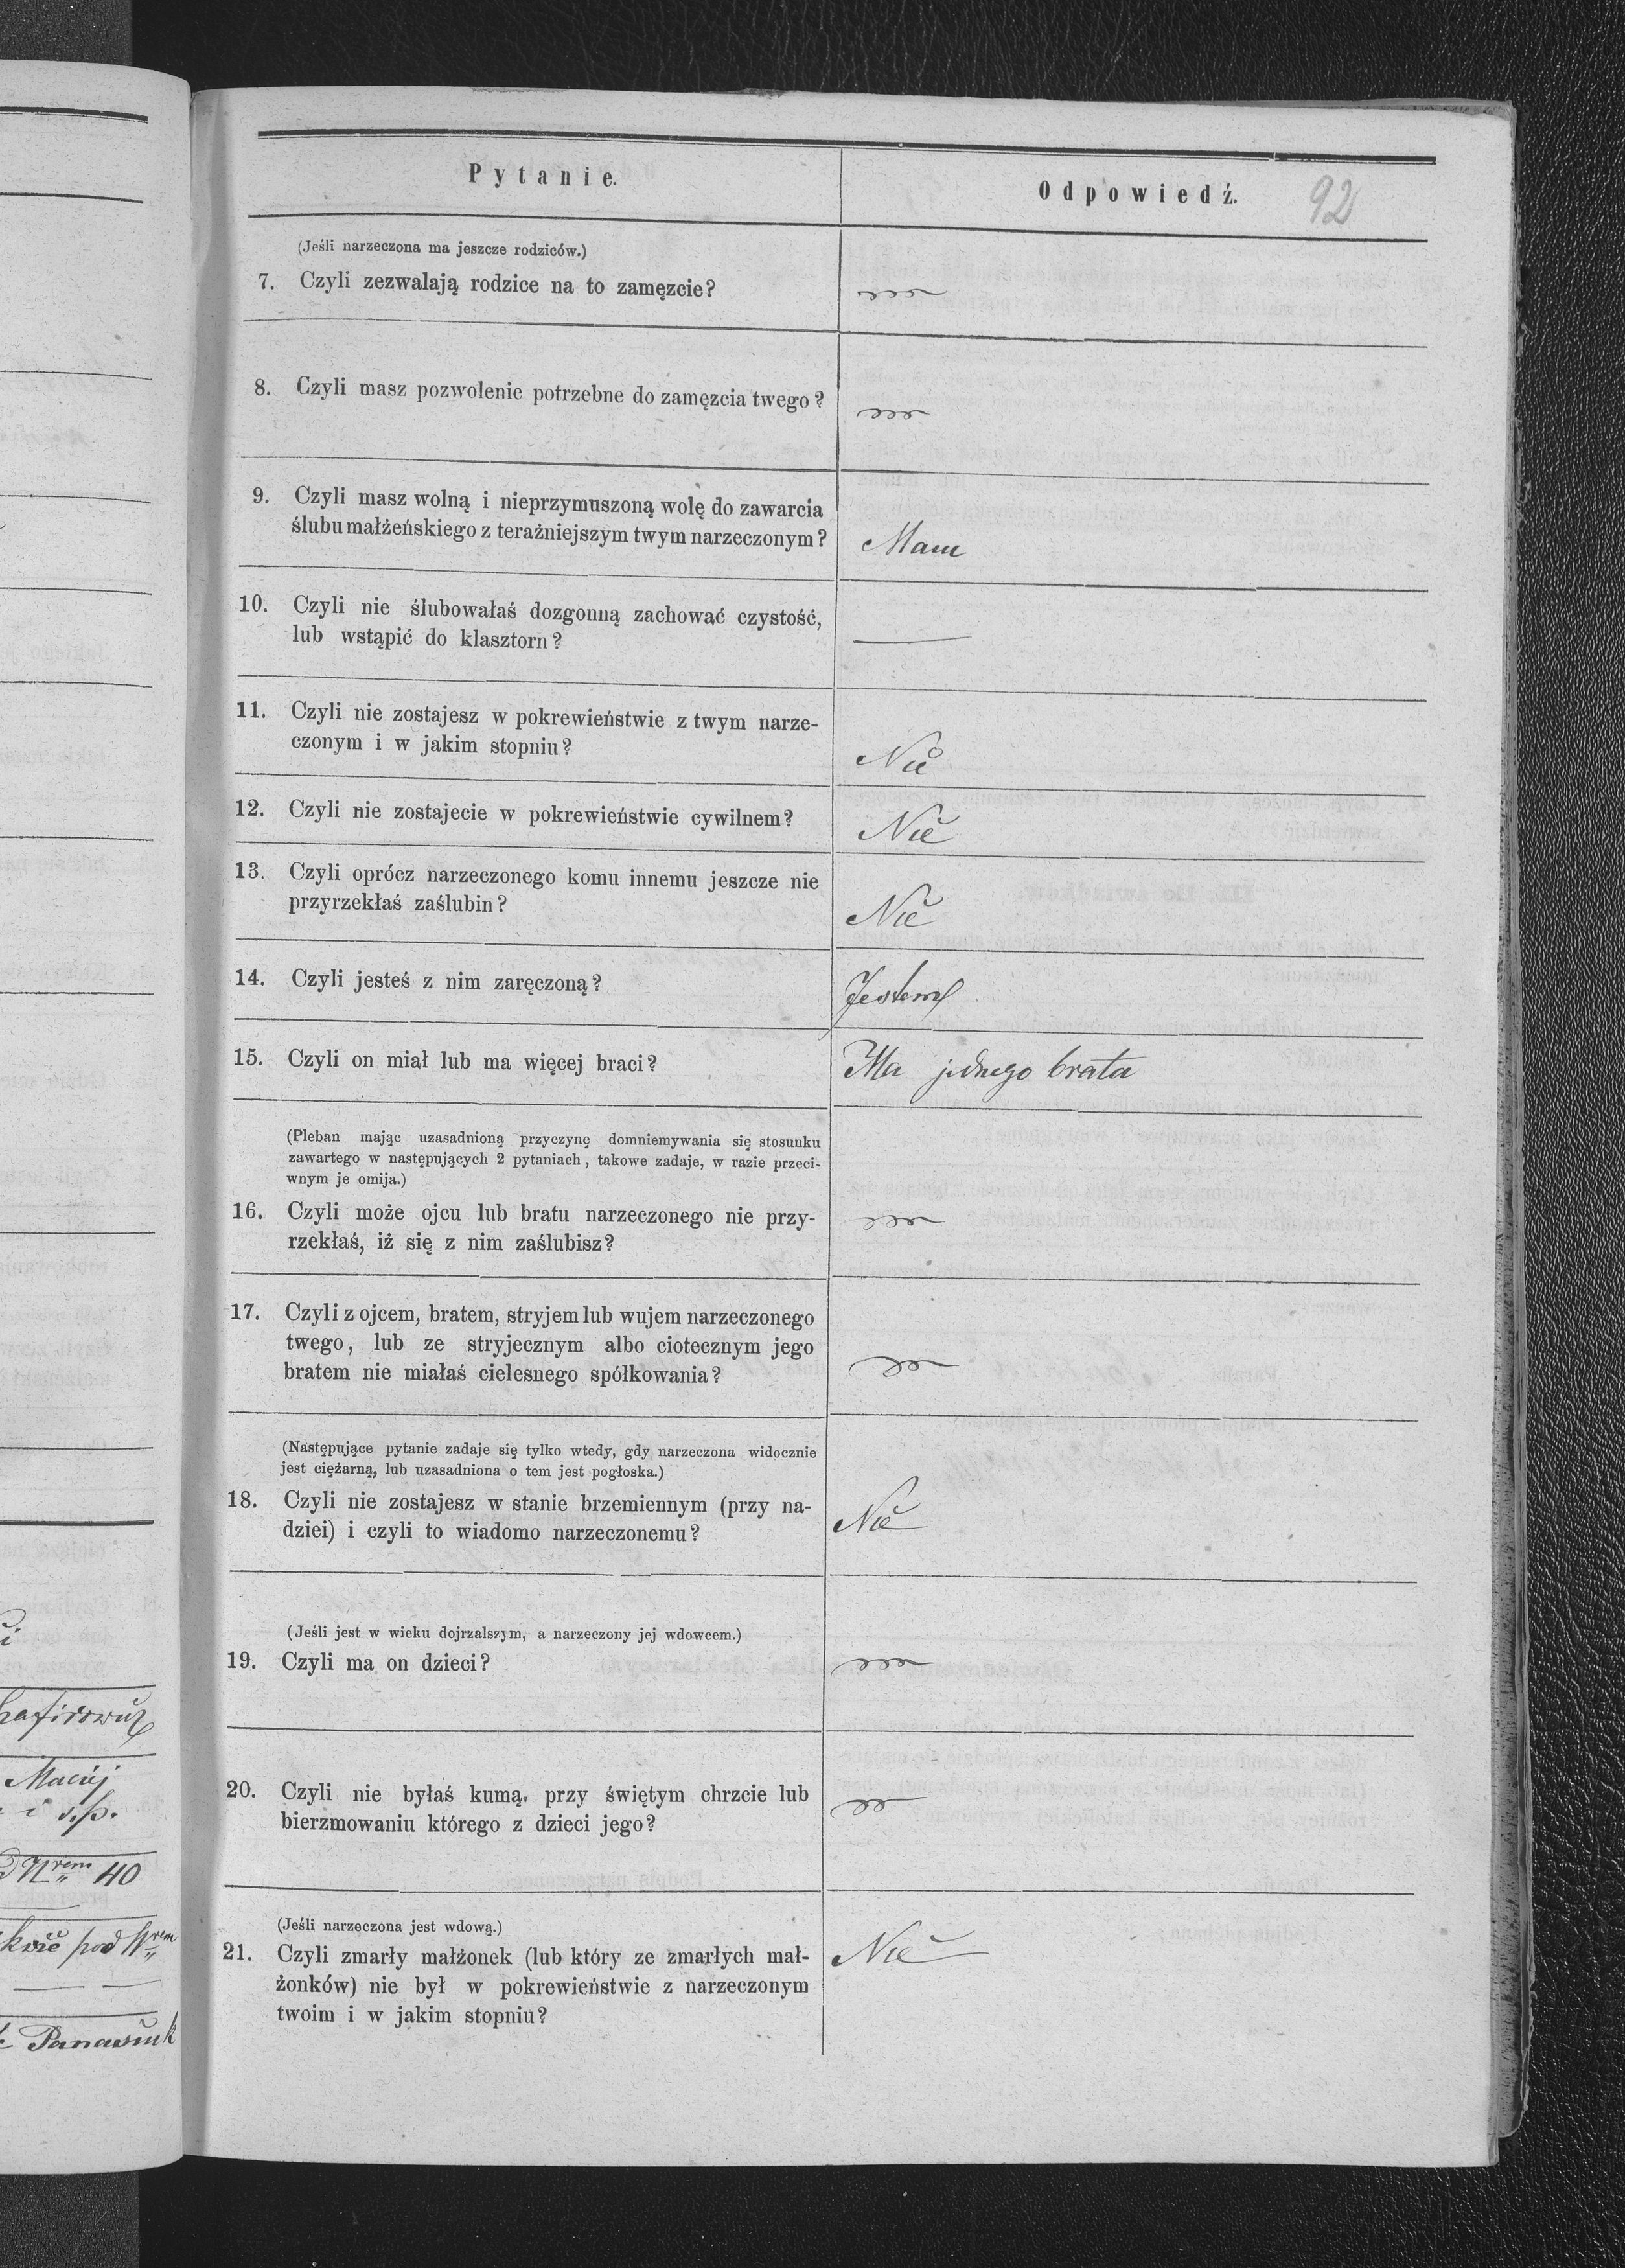 Pytanie.
Odpowiedź.
92
(Jeśli narzeczona ma jeszcze rodziców.)
7. Czyli zezwalają rodzice na to zamęzcie?
8. Czyli masz pozwolenie potrzebne do zamęzcia twego?
9. Czyli masz wolną i nieprzymuszoną wolę do zawarcia
ślubu małżeńskiego z teraźniejszym twym narzeczonym?
Mam
10. Czyli nie ślubowałaś dozgonną zachować czystość,
lub wstąpić do klasztorn?
—
11. Czyli nie zostajesz w pokrewieństwie z twym narze-
czonym i w jakim stopniu?
Nie
12. Czyli nie zostajecie w pokrewieństwie cywilnem?
Nie
13. Czyli oprócz narzeczonego komu innemu jeszcze nie
przyrzekłaś zaślubin?
Nie
14. Czyli jesteś z nim zaręczoną?
Jestem
15. Czyli on miał lub ma więcej braci?
Ma jednego brata
(Pleban mając uzasadnioną przyczynę domniemywania się stosunku
zawartego w następujących 2 pytaniach, takowe zadaje, w razie przeci-
wnym je omija.)
16. Czyli może ojcu lub bratu narzeczonego nie przy-
rzekłaś, iż się z nim zaślubisz?
17. Czyli z ojcem, bratem, stryjem lub wujem narzeczonego
twego, lub ze stryjecznym albo ciotecznym jego
bratem nie miałaś cielesnego spółkowania?
(Następujące pytanie zadaje się tylko wtedy, gdy narzeczona widocznie
jest ciężarną, lub uzasadniona o tem jest pogłoska.)
18. Czyli nie zostajesz w stanie brzemiennym (przy na-
dziei) i czyli to wiadomo narzeczonemu?
Nie
(Jeśli jest w wieku dojrzalszym, a narzeczony jej wdowcem.)
19. Czyli ma on dzieci?
20. Czyli nie byłaś kumą, przy świętym chrzcie lub
bierzmowaniu którego z dzieci jego?
(Jeśli narzeczona jest wdową.)
21. Czyli zmarły małżonek (lub który ze zmarłych mał-
żonków) nie był w pokrewieństwie z narzeczonym
twoim i w jakim stopniu?
Nie
Maciej
i ś.p.
Nrem 40
pod Nrem
Panasiuk